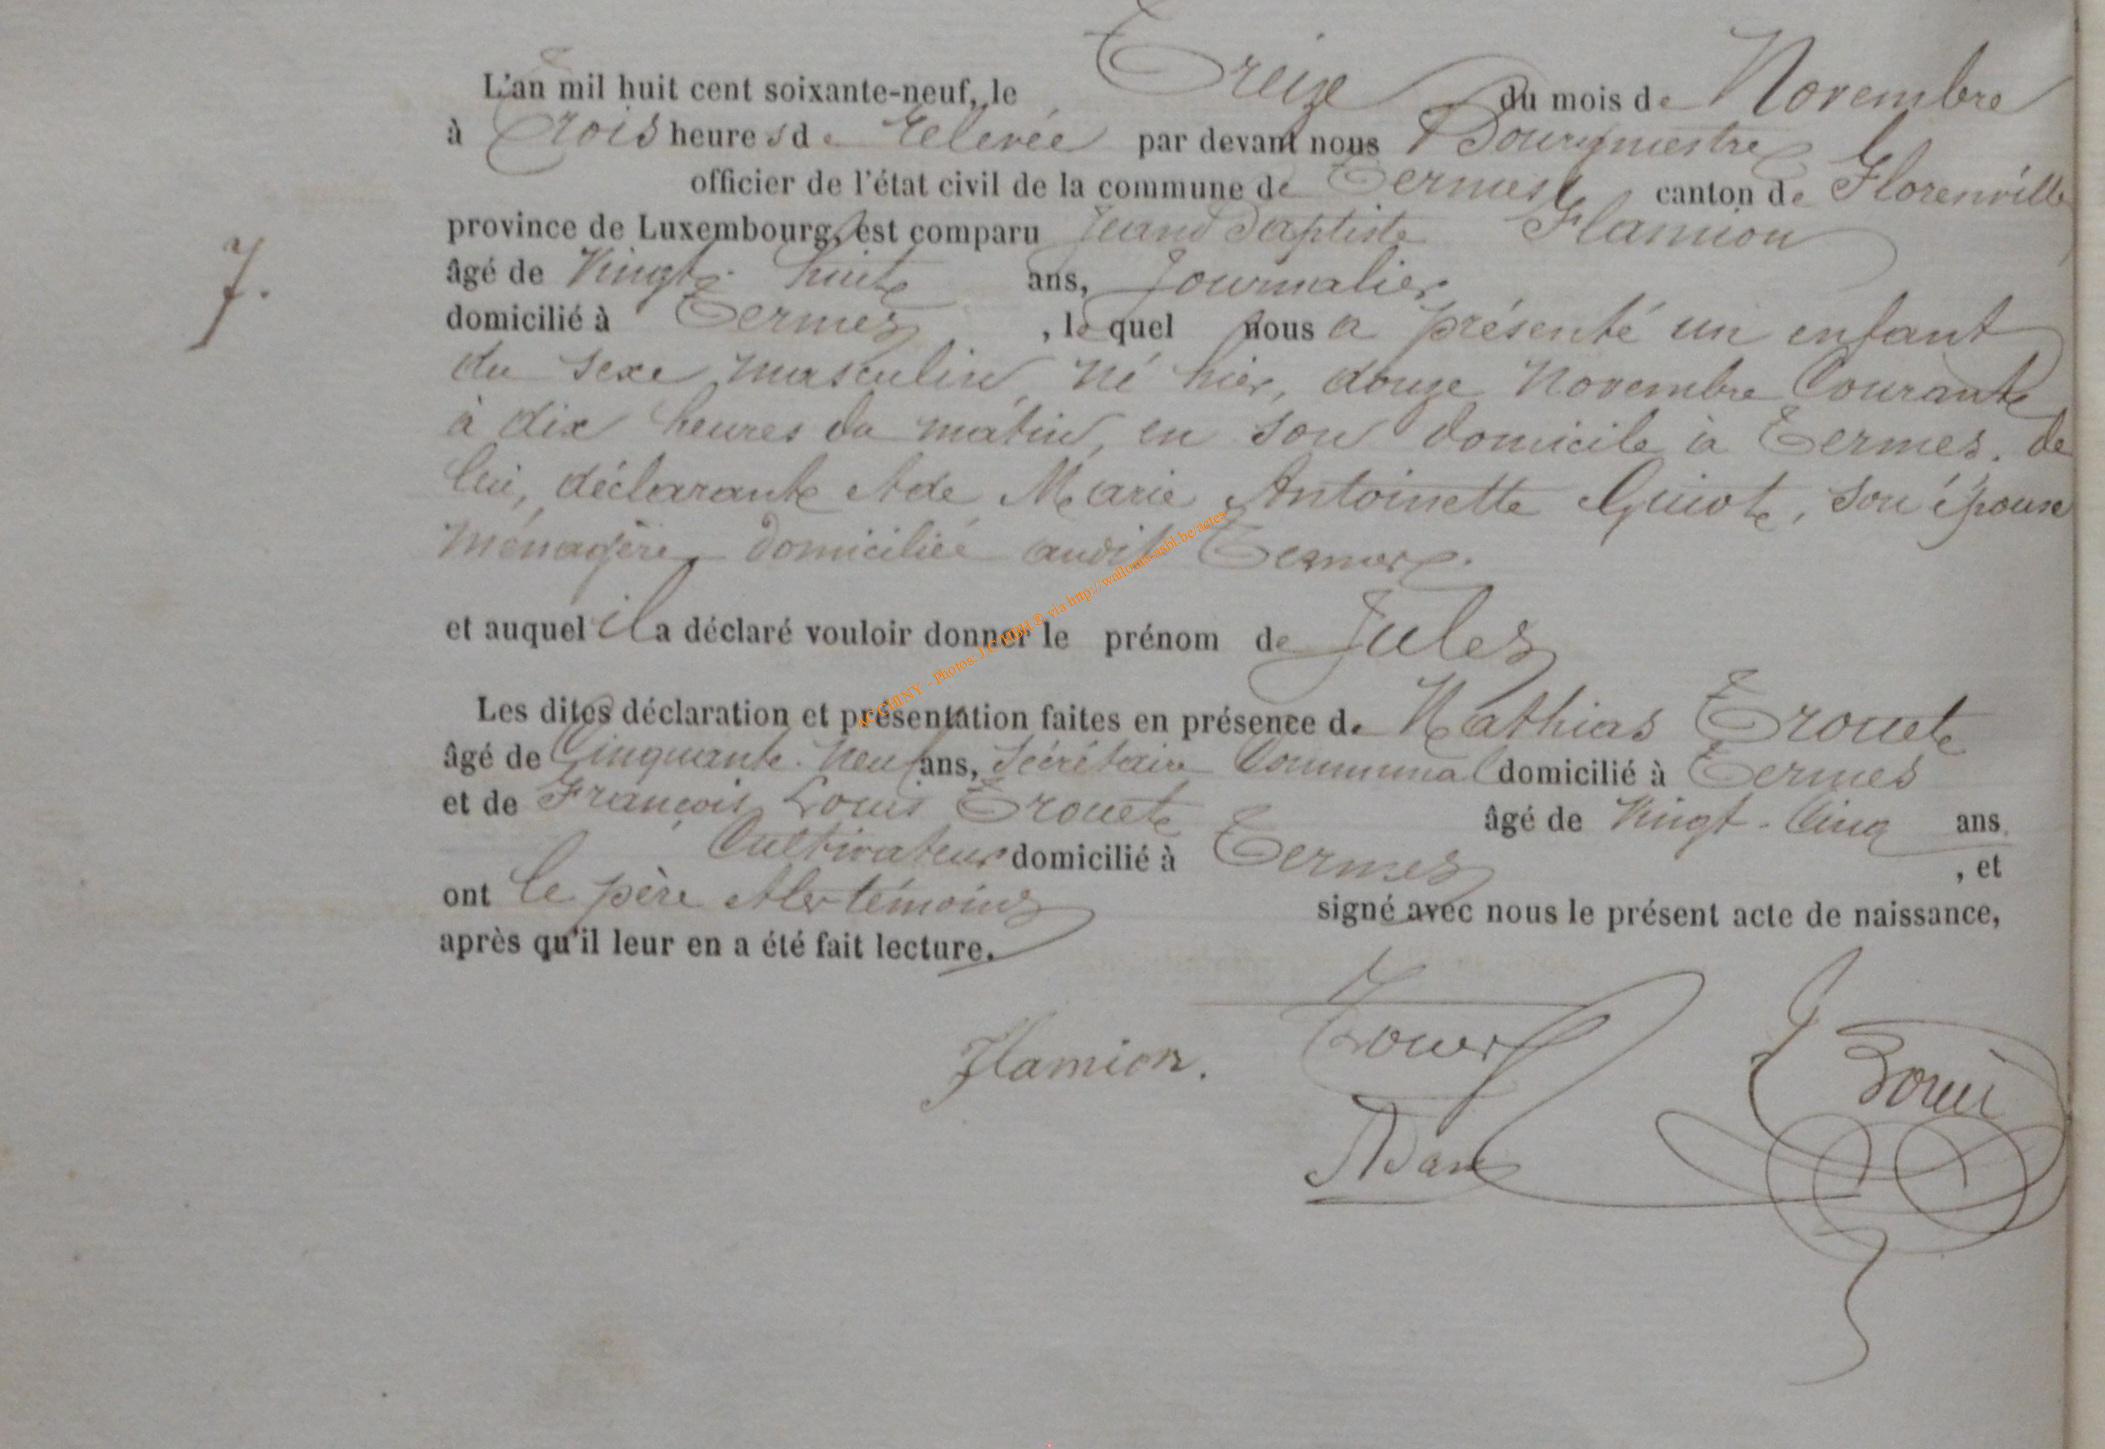 L'an mil huit cent soixante-neuf, le Treize du mois de Novembre
à Trois heures de relevée par devant nous Bourgmestre
officier de l'état civil de la commune de Termes, canton de Florenville
province de Luxembourg, est comparu Jean Baptiste Flamion
7. âgé de Vingt-huit ans, Journalier,
domicilié à Termes, lequel nous a présenté un enfant
du sexe masculin, né hier, douze Novembre Courant
à dix heures du matin, en son domicile à Termes, de
lui, déclarant et de Marie Antoinette Guiot, son épouse
ménagère, domiciliée audit Termes.
et auquel il a déclaré vouloir donner le prénom de Jules
Les dites déclaration et présentation faites en présence de Mathias Trouet
âgé de Cinquante-neuf ans, Sécrétaire Communal domicilié à Termes
et de François Louis Trouet âgé de Vingt-Cinq ans
Cultivateur domicilié à Termes, et
ont le père et les témoins signé avec nous le présent acte de naissance,
après qu'il leur en a été fait lecture.
Flamion. Trouet
Adam
- Photos J.C. ® via http://wallonia-asbl.be/actes